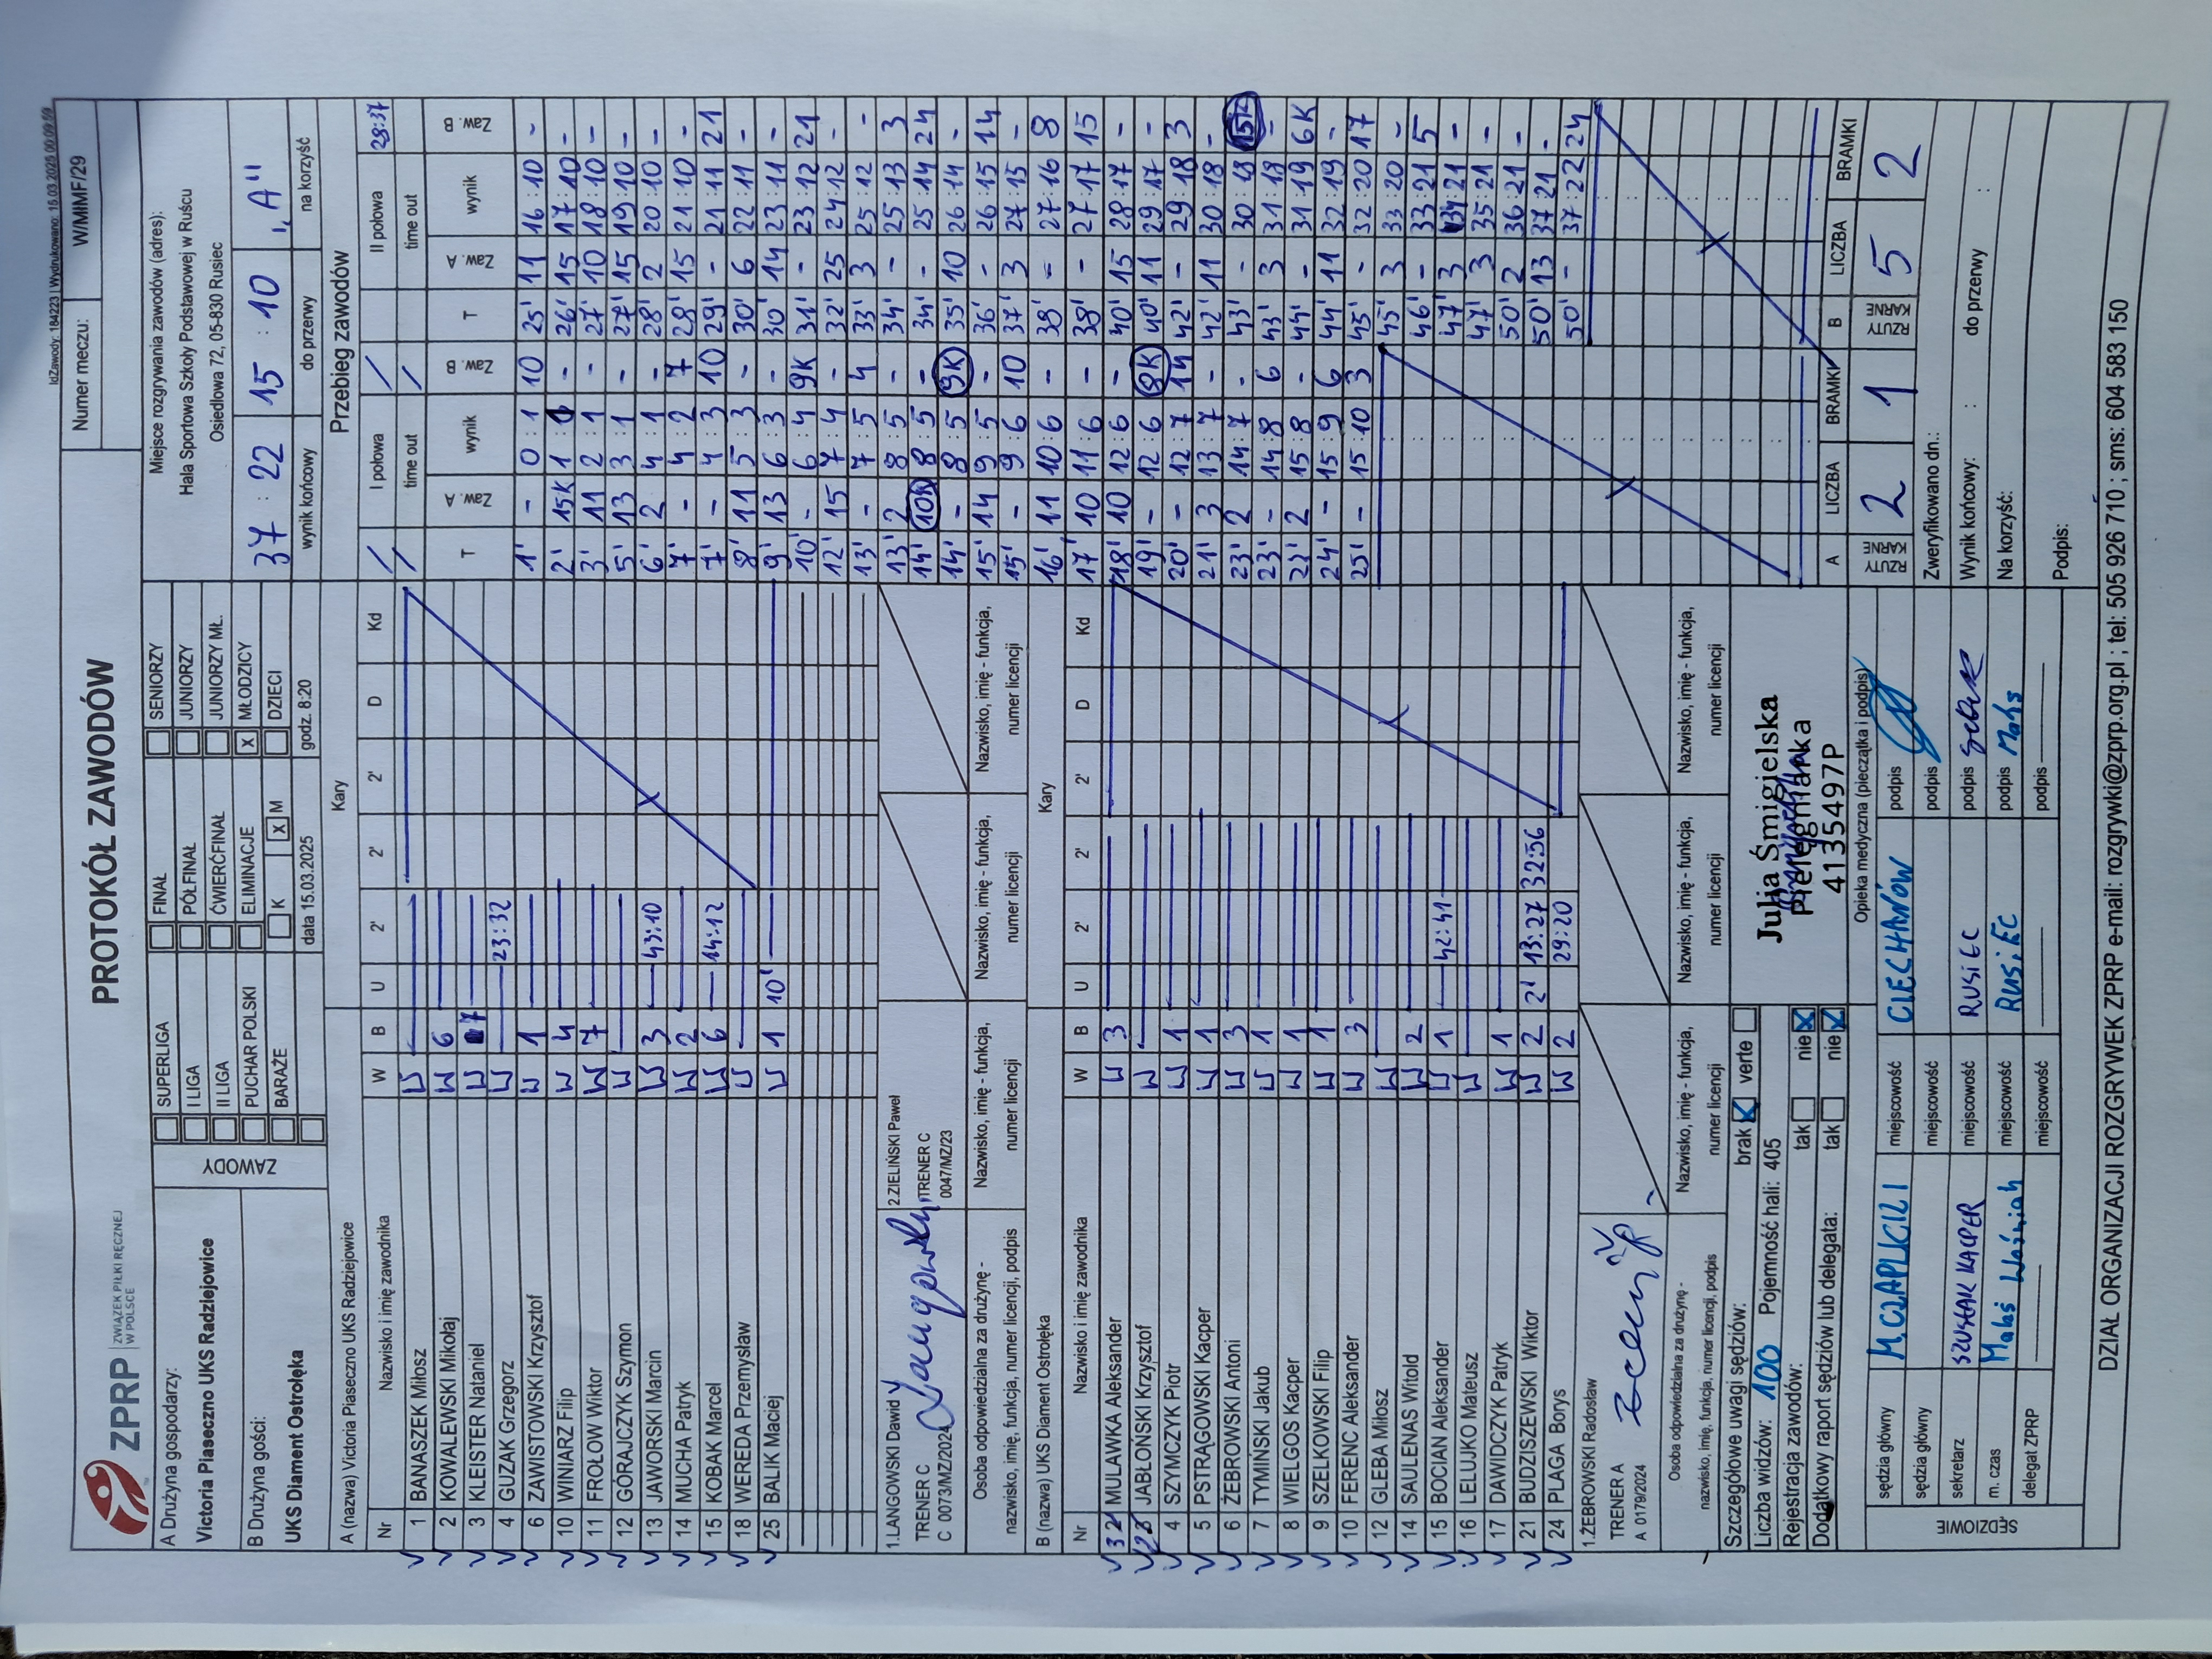 IdZawody: 184223 | Wydrukowano: 15.03.2025 00:09:59
ZPRP
ZWIĄZEK PIŁKI RĘCZNEJ
W POLSCE
PROTOKÓŁ ZAWODÓW
Numer meczu: W/MłMF/29
A Drużyna gospodarzy:
Victoria Piaseczno UKS Radziejowice
B Drużyna gości:
UKS Diament Ostrołęka
ZAWODY
SUPERLIGA FINAŁ SENIORZY
I LIGA PÓŁFINAŁ JUNIORZY
II LIGA ĆWIERĆFINAŁ JUNIORZY MŁ.
PUCHAR POLSKI ELIMINACJE X MŁODZICY
BARAŻE K X M DZIECI
data 15.03.2025 godz. 8:20
Miejsce rozgrywania zawodów (adres):
Hala Sportowa Szkoły Podstawowej w Ruścu
Osiedlowa 72, 05-830 Rusiec
37 : 22 15 : 10 "A"
wynik końcowy do przerwy na korzyść
A (nazwa) Victoria Piaseczno UKS Radziejowice Kary
Nr Nazwisko i imię zawodnika W B U 2' 2' 2' D Kd
1 BANASZEK Miłosz W
2 KOWALEWSKI Mikołaj W 6
3 KLEISTER Nataniel W 7
4 GUZAK Grzegorz W 23:32
6 ZAWISTOWSKI Krzysztof W 1
10 WINIARZ Filip W 4
11 FROŁOW Wiktor W 7
12 GÓRAJCZYK Szymon W
13 JAWORSKI Marcin W 3 43:10
14 MUCHA Patryk W 2
15 KOBAK Marcel W 6 14:12
18 WEREDA Przemysław W
25 BALIK Maciej W 1 10'
1.LANGOWSKI Dawid
TRENER C
C 0073/MZ/2024
2.ZIELIŃSKI Paweł
TRENER C
0047/MZ/23
Osoba odpowiedzialna za drużynę -
nazwisko, imię, funkcja, numer licencji, podpis
Nazwisko, imię - funkcja,
numer licencji
Nazwisko, imię - funkcja,
numer licencji
Nazwisko, imię - funkcja,
numer licencji
B (nazwa) UKS Diament Ostrołęka Kary
Nr Nazwisko i imię zawodnika W B U 2' 2' 2' D Kd
32 MULAWKA Aleksander W 3
JABŁOŃSKI Krzysztof W
4 SZYMCZYK Piotr W 1
5 PSTRĄGOWSKI Kacper W 1
6 ŻEBROWSKI Antoni W 3
7 TYMIŃSKI Jakub W 1
8 WIELGOS Kacper W 1
9 SZELKOWSKI Filip W 1
10 FERENC Aleksander W 3
12 GLEBA Miłosz W
14 SAULENAS Witold W 2
15 BOCIAN Aleksander W 1 42:41
16 LELUJKO Mateusz W
17 DAWIDCZYK Patryk W 1
21 BUDZISZEWSKI Wiktor W 2 2' 13:27 32:56
24 PLAGA Borys W 2 29:20
1.ŻEBROWSKI Radosław
TRENER A
A 0179/2024
Osoba odpowiedzialna za drużynę -
nazwisko, imię, funkcja, numer licencji, podpis
Nazwisko, imię - funkcja,
numer licencji
Nazwisko, imię - funkcja,
numer licencji
Nazwisko, imię - funkcja,
numer licencji
Przebieg zawodów
I połowa II połowa 28:37
time out time out
T Zaw. A wynik Zaw. B T Zaw. A wynik Zaw. B
1' - 0:1 10 25' 11 16:10 -
2' 15K 1:1 - 26' 15 17:10 -
3' 11 2:1 - 27' 10 18:10 -
5' 13 3:1 - 27' 15 19:10 -
6' 2 4:1 - 28' 2 20:10 -
7' - 4:2 7 28' 15 21:10 -
7' - 4:3 10 29' - 21:11 21
8' 11 5:3 - 30' 6 22:11 -
9' 13 6:3 - 30' 14 23:11 -
10' - 6:4 9K 31' - 23:12 21
12' 15 7:4 - 32' 25 24:12 -
13' - 7:5 4 33' 3 25:12 -
13' 2 8:5 - 34' - 25:13 3
14' 10K 8:5 - 34' - 25:14 24
14' - 8:5 9K 35' 10 26:14 -
15' 14 9:5 - 36' - 26:15 14
15' - 9:6 10 37' 3 27:15 -
16' 11 10:6 - 38' - 27:16 8
17' 10 11:6 - 38' - 27:17 15
18' 10 12:6 - 40' 15 28:17 -
19' - 12:6 8K 40' 11 29:17 -
20' - 12:7 14 42' - 29:18 3
21' 3 13:7 - 42' 11 30:18 -
23' 2 14:7 - 43' - 30:18 15K
23' - 14:8 6 43' 3 31:18 -
23' 2 15:8 - 44' - 31:19 6K
24' - 15:9 6 44' 11 32:19 -
25' - 15:10 3 45' - 32:20 17
45' 3 33:20 -
46' - 33:21 5
47' 3 34:21 -
47' 3 35:21 -
50' 2 36:21 -
50' 13 37:21 -
50' - 37:22 24
A LICZBA BRAMKI B LICZBA BRAMKI
RZUTY KARNE 2 1 RZUTY KARNE 5 2
Zweryfikowano dn.:
Wynik końcowy: : do przerwy :
Na korzyść:
Podpis:
Szczegółowe uwagi sędziów: brak X verte
Liczba widzów: 100 Pojemność hali: 405
Rejestracja zawodów: tak nie X
Dodatkowy raport sędziów lub delegata: tak nie X
Julia Śmigielska
Pielęgniarka
4135497P
Opieka medyczna (pieczątka i podpis)
SĘDZIOWIE
sędzia główny M. CZAPLICKI miejscowość CIECHANÓW podpis
sędzia główny miejscowość podpis
sekretarz SZUSTAK KACPER miejscowość RUSIEC podpis
m. czas miejscowość RUSIEC podpis
delegat ZPRP miejscowość podpis
DZIAŁ ORGANIZACJI ROZGRYWEK ZPRP e-mail: rozgrywki@zprp.org.pl ; tel: 505 926 710 ; sms: 604 583 150